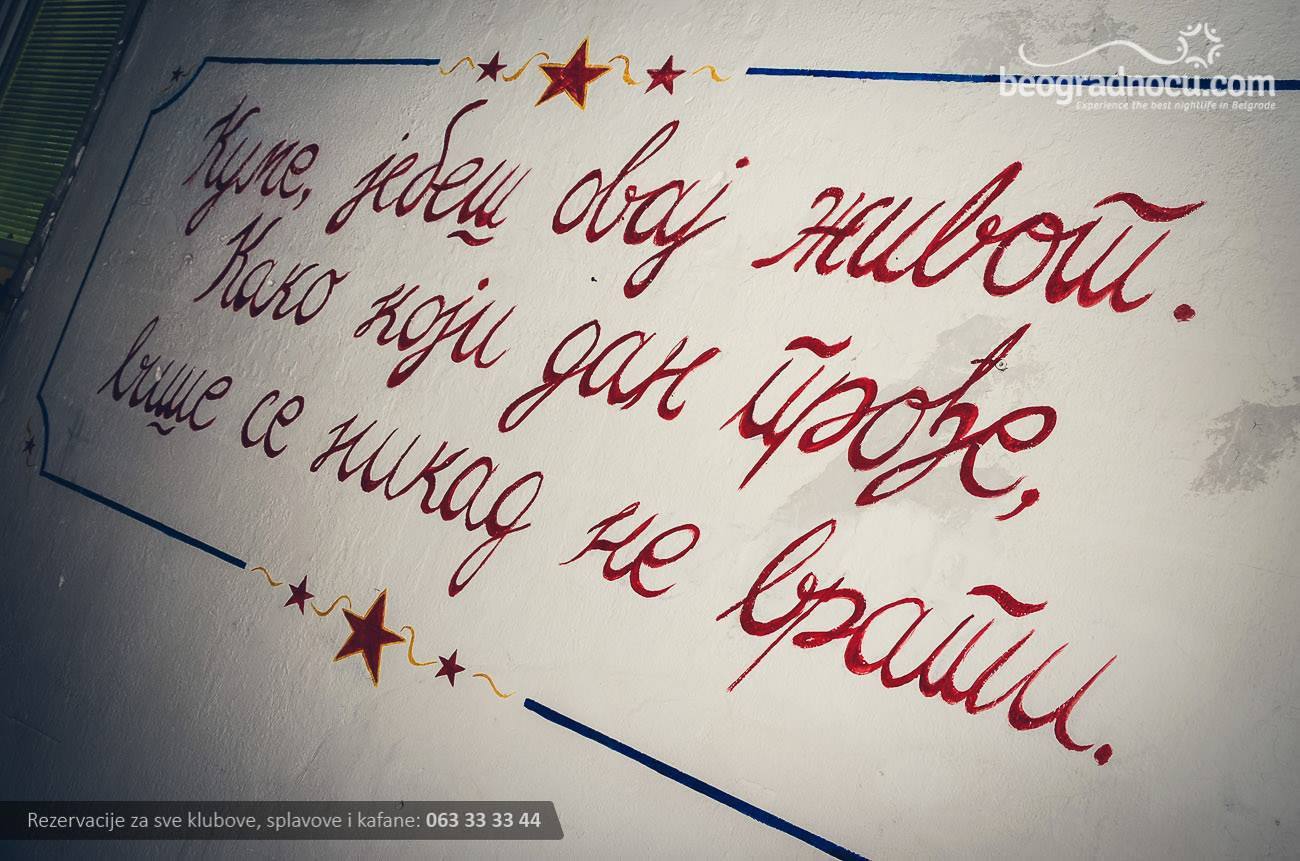 beogradnocu.com
Experience the best nightlife in Belgrade
Куме, јебеш овај живот.
Како који дан прође,
више се никад не врати.
Rezervacije za sve klubove, splavove i kafane: 063 33 33 44